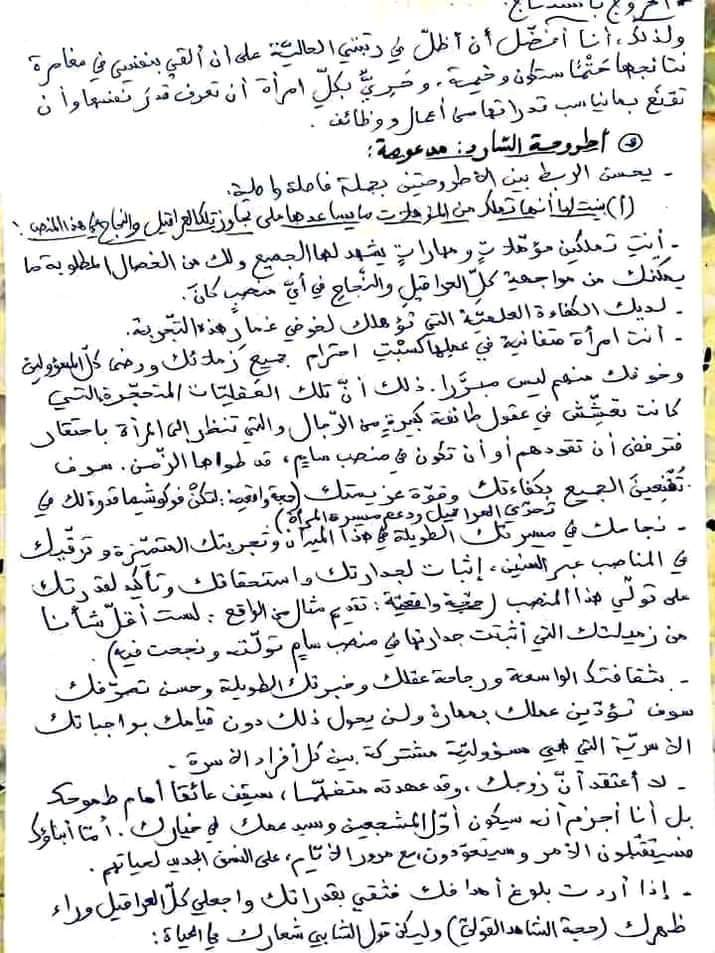 ولذلك، أنا أفضّل أن أظلّ في رتبتي الحالية على أن ألقي بنفسي في مغامرة
نتائجها حَتْمًا ستكون وخيمة. وحَرِيٌّ بكلّ امرأة أن تعرف قدرَ نفسها وأن
تقنع بما يناسب قدراتها من أعمال ووظائف.
أطروحة الشارد: مدعومة:
- يحسن الربط بين الأطروحتين بجملة فاصلة واصلة.
(أ) بينت لها أنها تملك من المؤهلات ما يساعدها على تجاوز تلك العراقيل والنجاح في هذا المنصب:
- أنتِ تملكين مؤهّلاتٍ ومهاراتٍ يشهد لها الجميع ولك من الخصال المطلوبة ما
يمكنك من مواجهة كلّ العراقيل والنّجاح في أيّ منصبٍ كانَ.
- لديك الكفاءة العلميّة التي تؤهلك لخوض غمار هذه التّجربة.
- أنت امرأة متفانية في عملها كسبْتِ احترام جميع زملائك ورضى كلّ المسؤولين
وخوفك منهم ليس مبرَّرا. ذلك أنّ تلك العقليّات المتحجّرة التي
كانت تعشّش في عقول طائفة كبيرة من الرّجال والتي تنظر إلى المرأة باحتقار
فترفض أن تقودهم أو أن تكون في منصب سامٍ، قد طواها الزّمن. سوف
تُقْنِعينَ الجميع بكفاءتك وقوّة عزيمتك (حجة واقعية: لتكنْ فوكوشيما قدوة لك في
تحدّي العراقيل ودعم مسيرة المرأة)
- نجاحك في مسيرتك الطويلة في هذا الميدان وتجربتك المتميّزة وترقّيك
في المناصب عبر السنين، إثبات لجدارتك واستحقاقك وتأكيد لقدرتك
على تولّي هذا المنصب (حجّة واقعيّة: تقديم مثال من الواقع: لست أقلّ شأنا
من زميلتك التي أثبتت جدارتها في منصب سامٍ تولّته ونجحت فيه).
- بثقافتك الواسعة ورجاحة عقلك وخبرتك الطويلة وحسن تصرّفك
سوف تؤدّين عملك بمهارة ولن يحول ذلك دون قيامك بواجباتك
الأسريّة التي هي مسؤوليّة مشتركة بين كل أفراد الأسرة.
- لا أعتقد أنّ زوجك، وقد عهدته متفهّما، سيقف عائقا أمام طموحك
بل أنا أجزم أنه سيكون أوّل المشجعين وسيدعمك في خيارك. أمّا أبناؤك
فسيتقبّلون الأمر وسيتعوّدون، مع مرور الأيّام، على النسق الجديد لحياتهم.
- إذا أردت بلوغ أهدافك فثقي بقدراتك واجعلي كلّ العراقيل وراء
ظهرك (حجة الشاهد القولي) وليكن قول الشابي شعارك في الحياة: